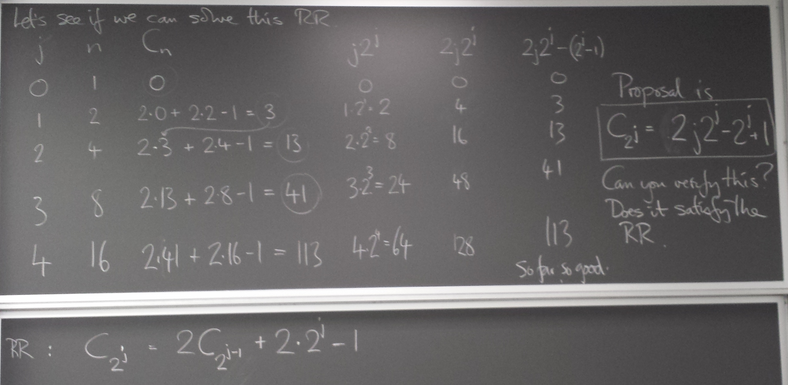 Let's see if we can solve this RR.
j n Cₙ j2ʲ 2j2ʲ 2j2ʲ-(2ʲ-1)
0 1 0 0 0 0
1 2 2·0 + 2·2 - 1 = 3 1·2 = 2 4 3
2 4 2·3 + 2·4 - 1 = 13 2·2² = 8 16 13
3 8 2·13 + 2·8 - 1 = 41 3·2³ = 24 48 41
4 16 2·41 + 2·16 - 1 = 113 4·2⁴ = 64 128 113
So far so good.
Proposal is
C_{2ʲ} = 2j2ʲ - 2ʲ + 1
Can you verify this?
Does it satisfy the
RR.
RR : C_{2ʲ} = 2C_{2ʲ⁻¹} + 2·2ʲ - 1